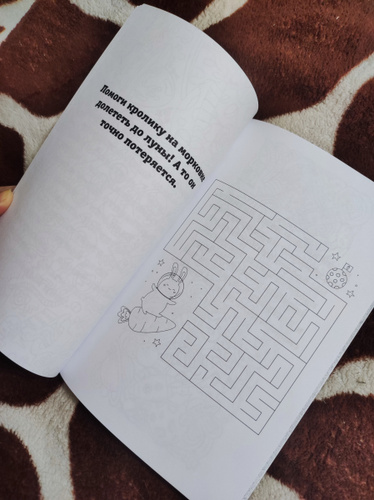 Помоги кролику на морковке
долететь до луны! А то он
точно потеряется.